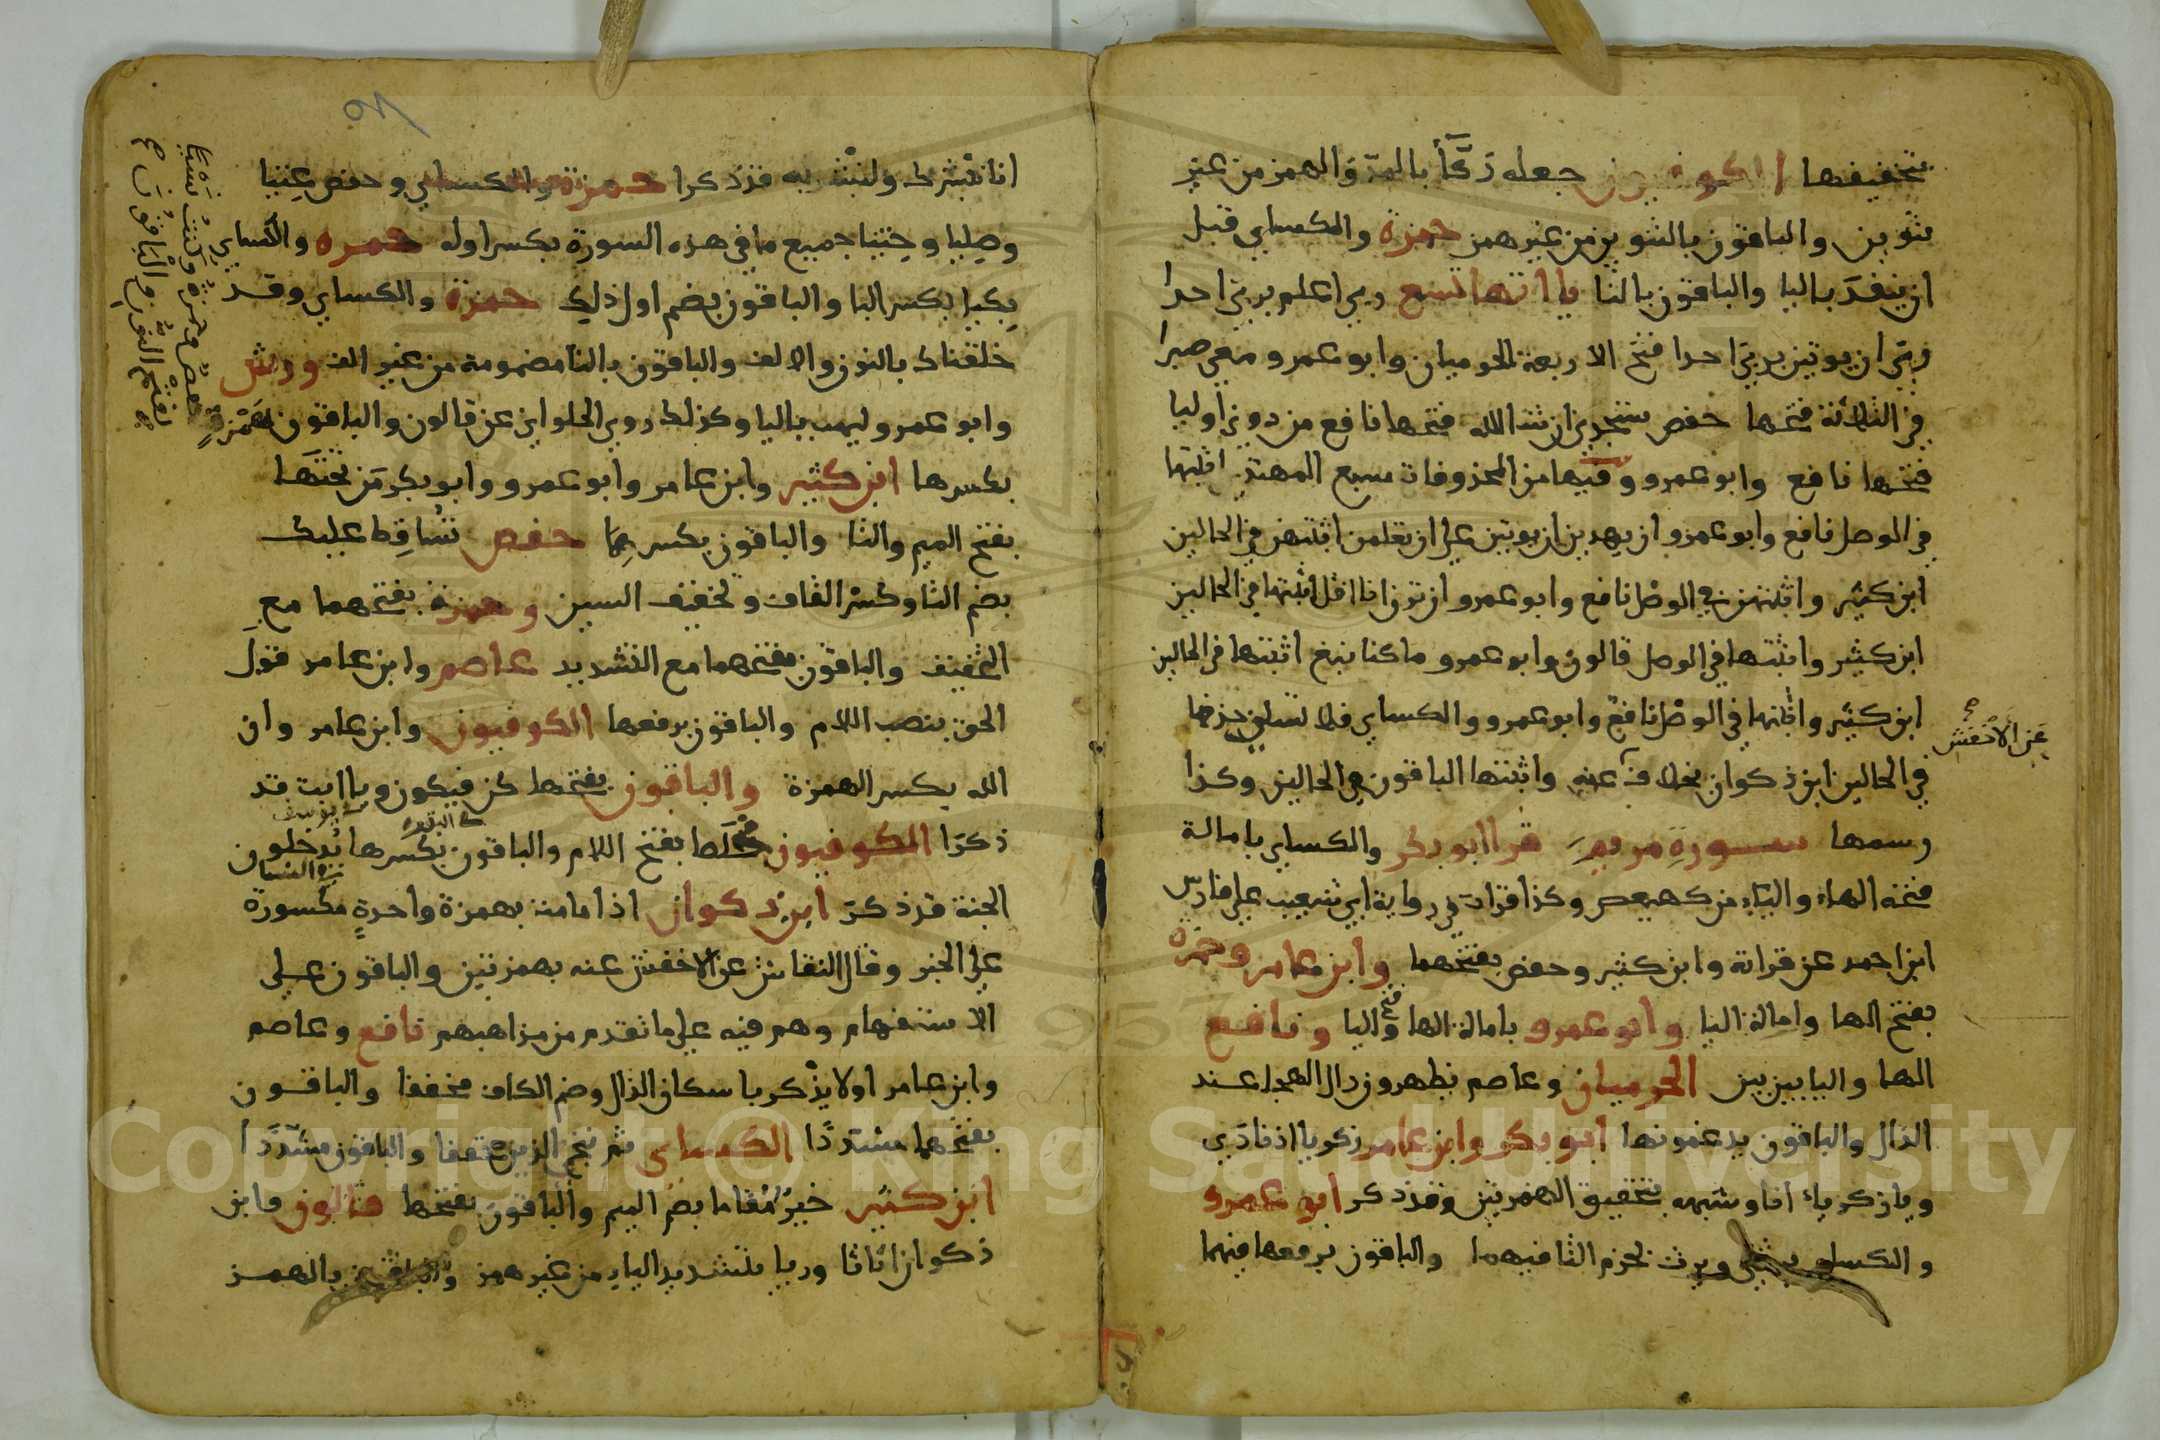 بتخفيفها الكوفيون جعله دكّأ بالمدّ والهمز من غير
تنوين والباقون بالتنوين من غير همز حمزة والكساي قبل
ان ينفدَ باليا والباقون بالتا ياآتها تسع ربي اعلم بربي احدا
ربي ان يوتين بربي احدا فتح الاربعة الحرميان وابو عمرو معي صبرا
في الثلاثة فتحها حفص ستجدني ان شا الله فتحها نافع من دوني اوليا
فتحها نافع وابو عمرو وفيها من المحذوفات سبع المهتد اثبتها
في الوصل نافع وابو عمرو ان يهدين ان يوتين على ان تعلمن اثبتهن في الحالين
ابن كثير واثبتهن في الوصل نافع وابو عمرو ان ترن انا اقل اثبتها في الحالين
ابن كثير واثبتها في الوصل قالون وابو عمرو ما كنا نبغ اثبتها في الحالين
ابن كثير واثبتها في الوصل نافع وابو عمرو والكساي فلا تسلني حذفها
في الحالين ابن ذكوان بخلاف عنه واثبتها الباقون في الحالين وكذا
عن الاخفش صح
رسمها سورة مريم قرا ابو بكر والكساي بامالة
فتحة الهاء والياء من كهيعص وكذا قرات في رواية ابي شعيب على فارس
ابن احمد عن قراته وابن كثير وحفص بفتحهما وابن عامر وحمزة
بفتح الها وامالة اليا وابو عمرو بامالة الها وفتح اليا ونافع
الها واليا بين بين الحرميان وعاصم يظهرون دال الهجا عند
الذال والباقون يدغمونها ابو بكر وابن عامر زكريا اذ نادي
ويا زكرياء انا وشبهه بتحقيق الهمزتين وقد ذكر ابو عمرو
والكساي يرثني ويرث بجزم الثا فيهما والباقون برفعها فيهما
٨٥
انا نبشرك ولتبشر به قد ذكرا حمزة والكساي وحفص عِتيا
وصِليا وجِثيا جميع ما في هذه السورة بكسر اوله حمزه والكساي
بِكيا بكسر البا والباقون بضم اول ذلك حمزة والكساي وقد
خلقناك بالنون والالف والباقون بالتا مضمومة من غير الف ورش
وابو عمرو ليهب باليا وكذلك روى الحلواني عن قالون والباقون بهمزةٍ
حفص وحمزه وكنتُ نَسْيًا
بفتح النون والباقون
بكسرها ابن كثير وابن عامر وابو عمرو وابو بكر مَن تحتَها
بفتح الميم والتا والباقون بكسرهما حفص تُساقِط عليك
بضم التا وكسر القاف وتخفيف السين وحمزة بفتحهما مع
التخفيف والباقون بفتحهما مع التشديد عاصم وابن عامر قولَ
الحق بنصب اللام والباقون برفعها الكوفيون وابن عامر وان
الله بكسر الهمزة والباقون بفتحها كن فيكون ويا ابت قد
ذكرا الكوفيون مخلَصا بفتح اللام والباقون بكسرها يُدخلون
الجنة قد ذكر ابن ذكوان اذا مامت بهمزة واحدةٍ مكسورة
على الخبر وقال النقاش عن الاخفش عنه بهمزتين والباقون على
الاستفهام وهم فيه على ما تقدم من مذاهبهم نافع وعاصم
وابن عامر اولا يذْكر باسكان الذال وضم الكاف مخففا والباقون
بفتحهما مشددًا الكساي ثم ننجي الذين مخففا والباقون مشددًا
ابن كثير خيرٌ مُقاما بضم الميم والباقون بفتحها قالون وابن
ذكوان اثاثا وريا بتشديد الياء من غير همز والباقون بالهمز